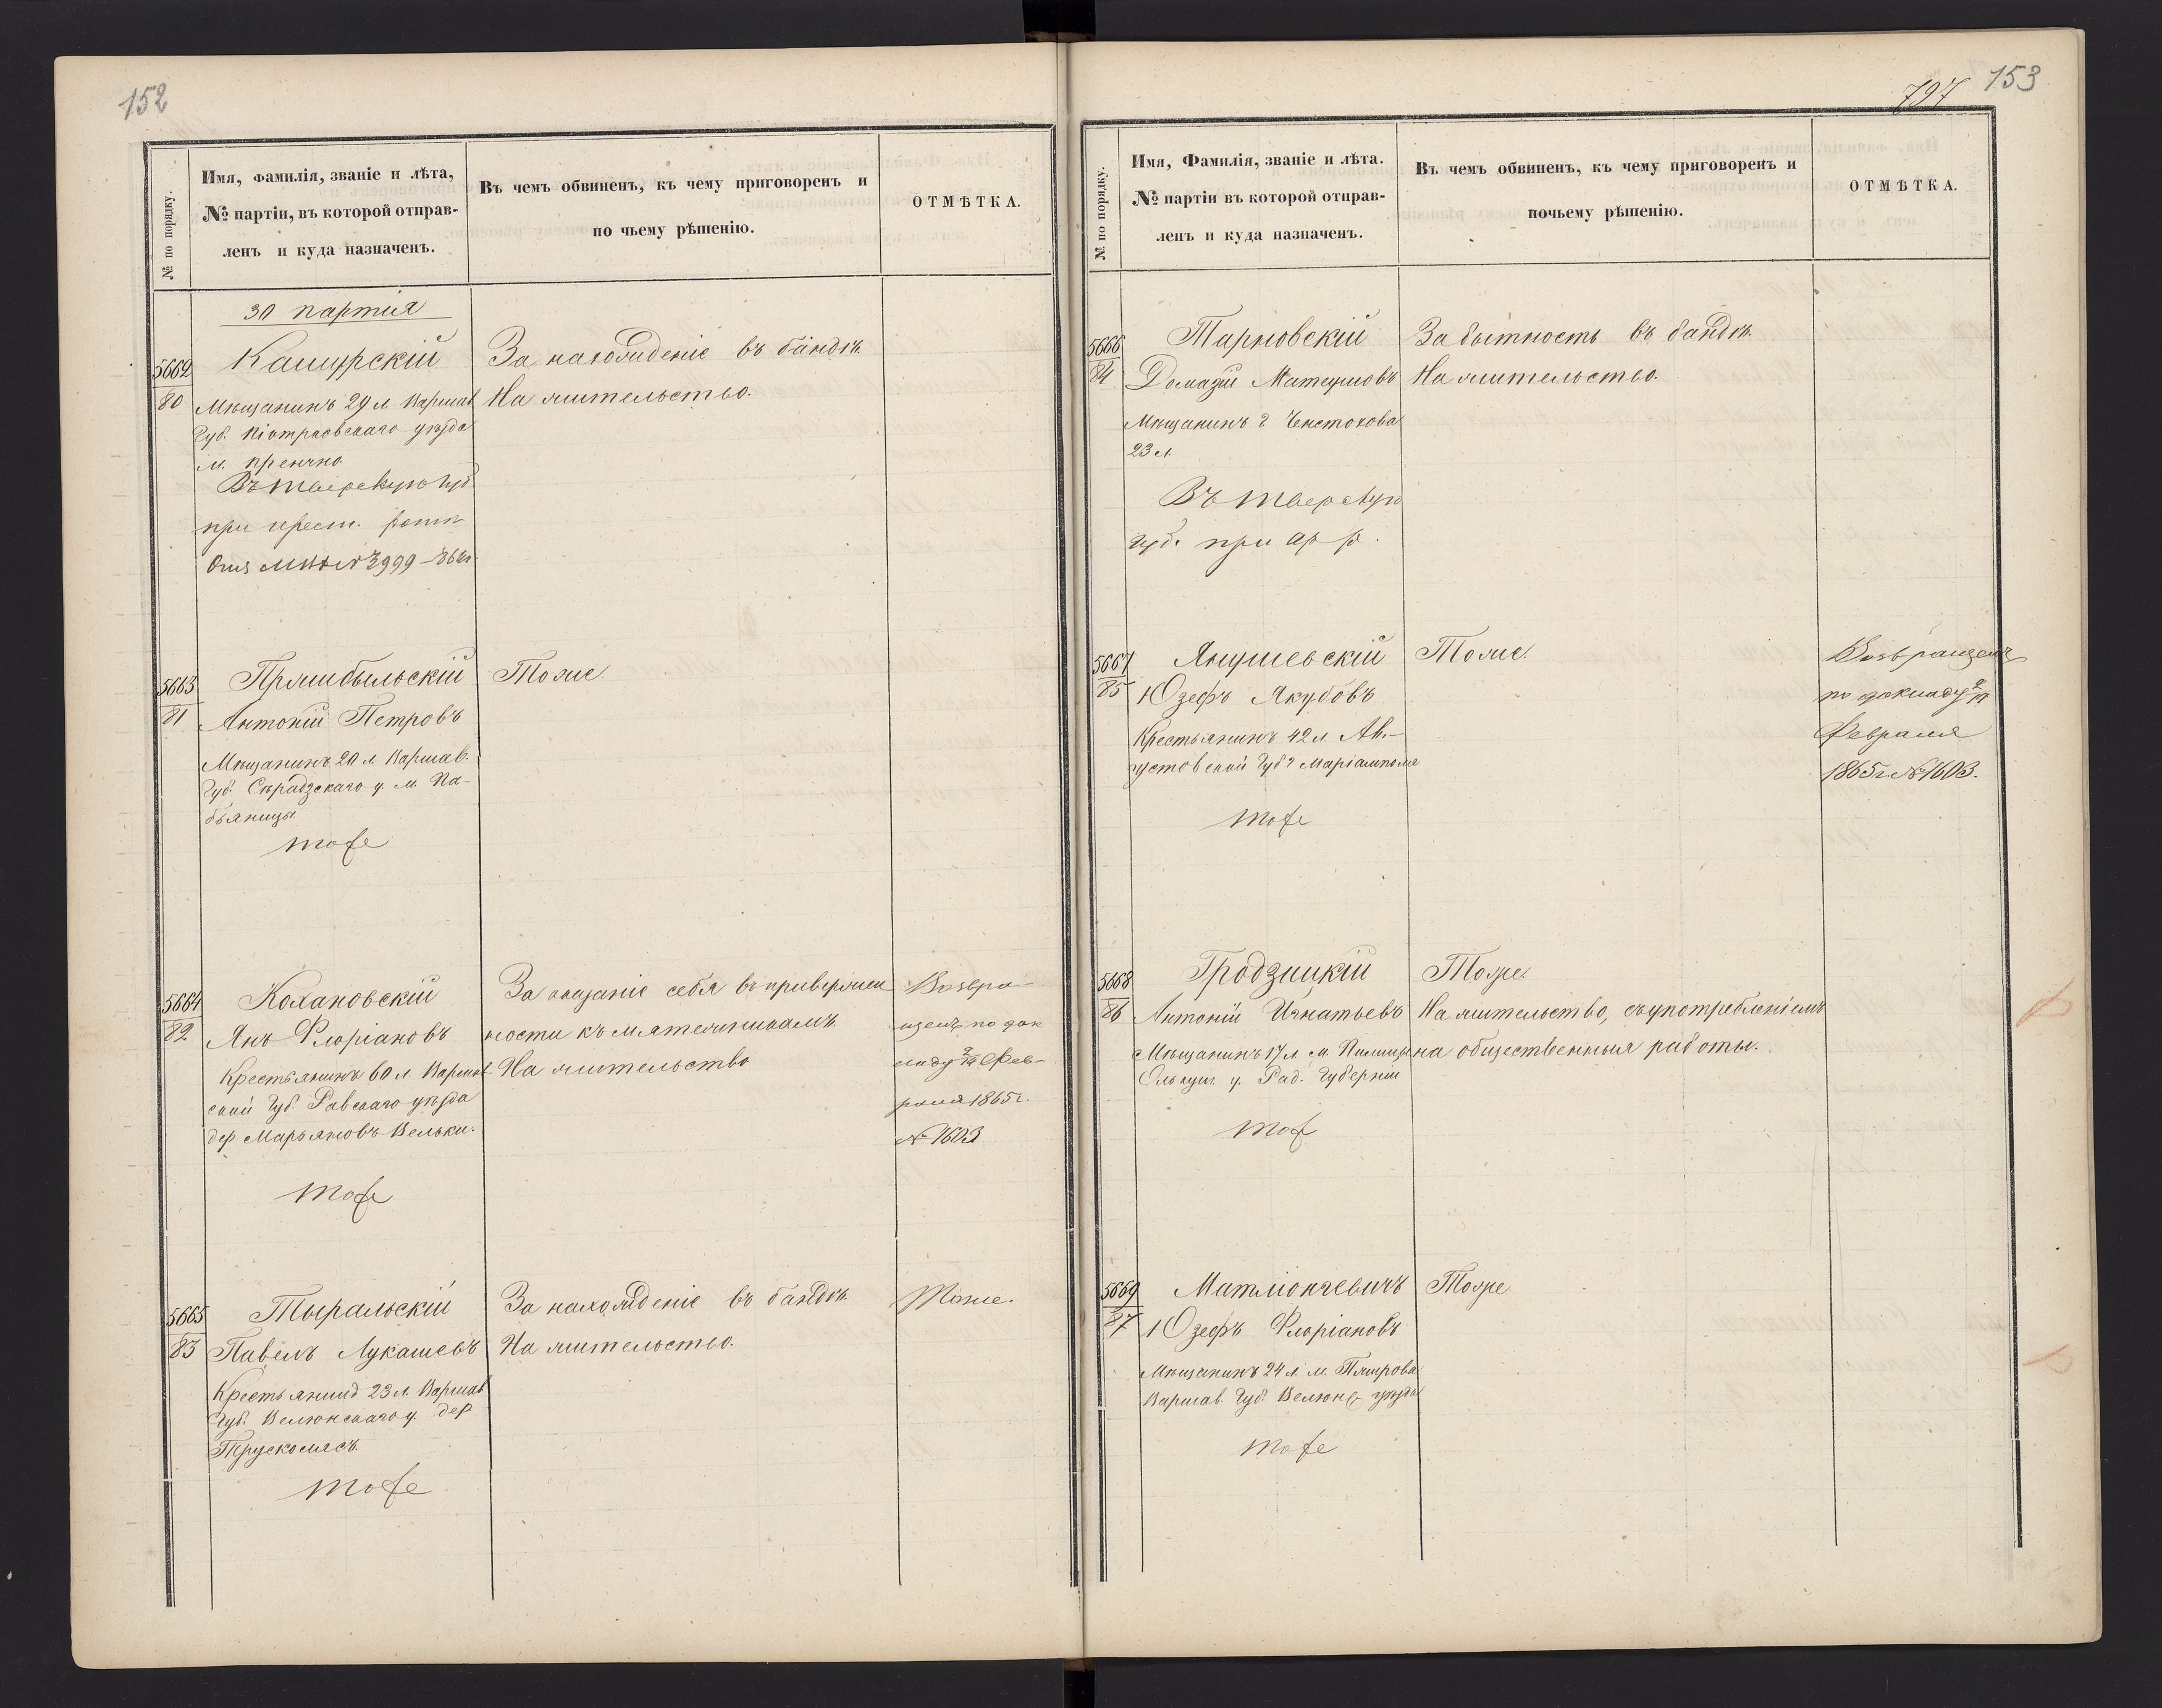 152
№ по порядку.
Имя, Фамилія, званіе и лѣта,
№ партіи, въ которой отправ-
ленъ и куда назначенъ.
Въ чемъ обвиненъ, къ чему приговоренъ и
по чьему рѣшенію.
ОТМѢТКА.
30 партія
5662
80
Кашурскій
Мѣщанинъ 29 л. Варшав
Губ. Піотрковскаго уѣзда
м. Пренчно
Въ Тверскую губ
при арест. ротѣ
За нахожденіе въ бандѣ.
На жительство.
5663
81
Пржибыльскій
Антоній Петровъ
Мѣщанинъ 20 л Варшав.
Губ. Сѣрадзскаго у. м. Па-
бьяницы.
тоже
Тоже
5664
82
Кохановскій
Янъ Флоріановъ
Крестьянинъ 60 л Варшав
ской Губ. Равскаго уѣзда
дер Марьяновъ Вельки.
тоже
За оказаніе себя въ привержен
ности къ мятежникамъ.
На жительство
Возвра-
щенъ по док
ладу 2/14 Фев-
раля 1865 г.
№ 1603
5665
83
Тыральскій
Павелъ Лукашевъ
Крестьянинъ 23 л. Варшав
Губ. Велюнскаго у. дер
Трусколясъ.
тоже
За нахожденіе въ бандѣ.
На жительство.
Тоже.
153
797
№ по порядку.
Имя, Фамилія, званіе и лѣта.
№ партіи въ которой отправ-
ленъ и куда назначенъ.
Въ чемъ обвиненъ, къ чему приговоренъ и
почьему рѣшенію.
ОТМѢТКА.
5666
84
Тарновскій
Матеушовъ
Мѣщанинъ г Ченстохова
23 л.
Въ Тверскую
губ. при ар р.
За бытность въ бандѣ.
На жительство.
5667
85
Янушевскій
Юзефъ Якубовъ
Крестьянинъ 42 л. Ав-
густовской Губ г Маріамполя
тоже
Тоже.
Возвращенъ
по докладу 2/14
Февраля
1865 г № 1603.
5668
86
Гродзицкій
Антоній Игнатьевъ
Мѣщанинъ 17 л. м. Пилица
Олькуш. у. Рад. Губерніи
тоже
Тоже.
На жительство, съ употребленіемъ
на общественныя работы.
5669
87
Матлiонгевичъ
Юзефъ Флоріановъ
Мѣщанинъ 24 л. м.
Варшав. Губ. Велюнс уѣзда
тоже
Тоже